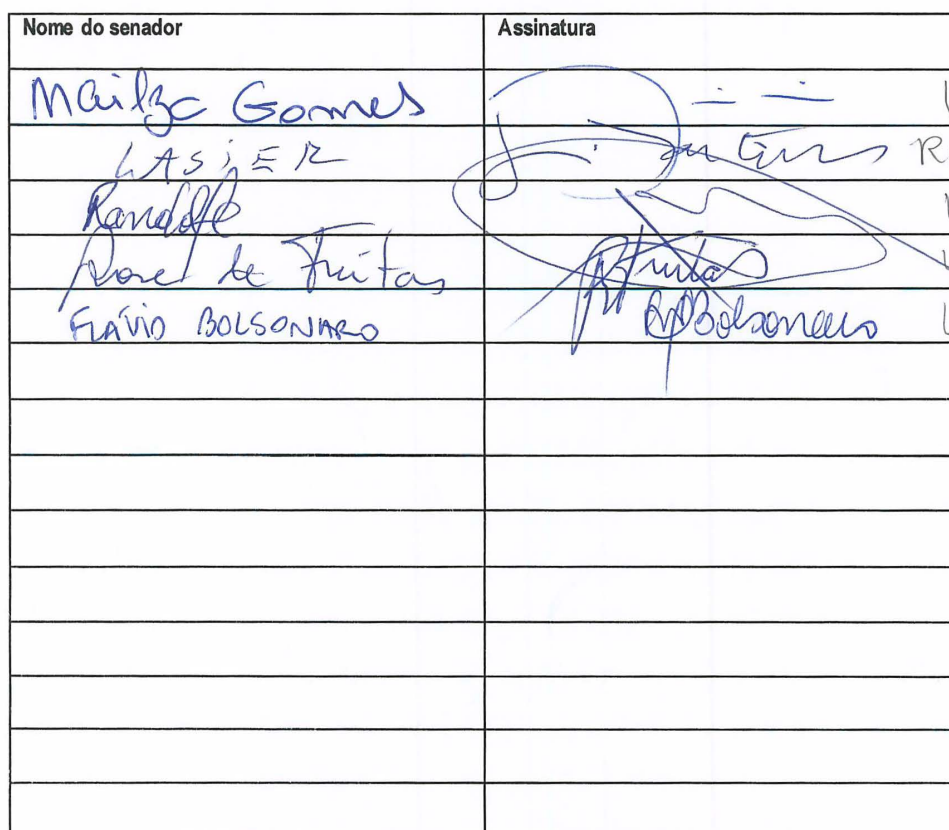 Nome do senador Assinatura
Mailza Gomes
LASIER R
Randolfe
Rose de Freitas Freitas
FLÁVIO BOLSONARO Bolsonaro